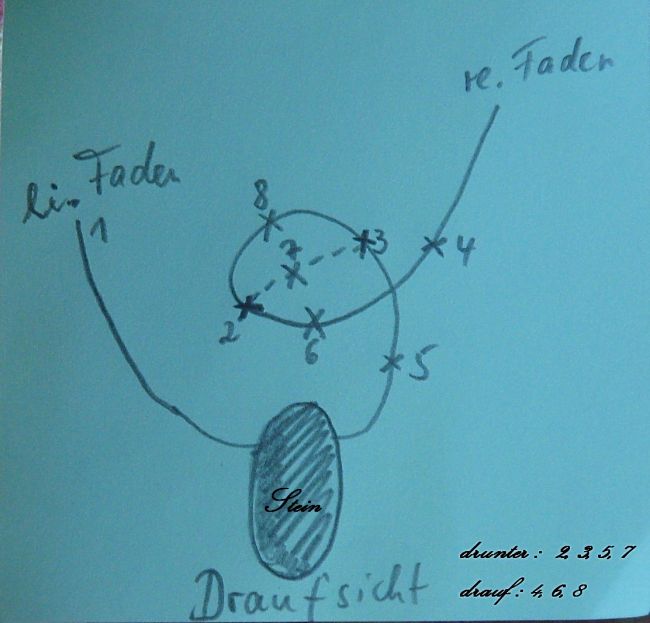 re. Faden
li. Faden
1
8
7
3
4
2
6
5
Stein
drunter: 2, 3, 5, 7
drauf: 4, 6, 8
Draufsicht